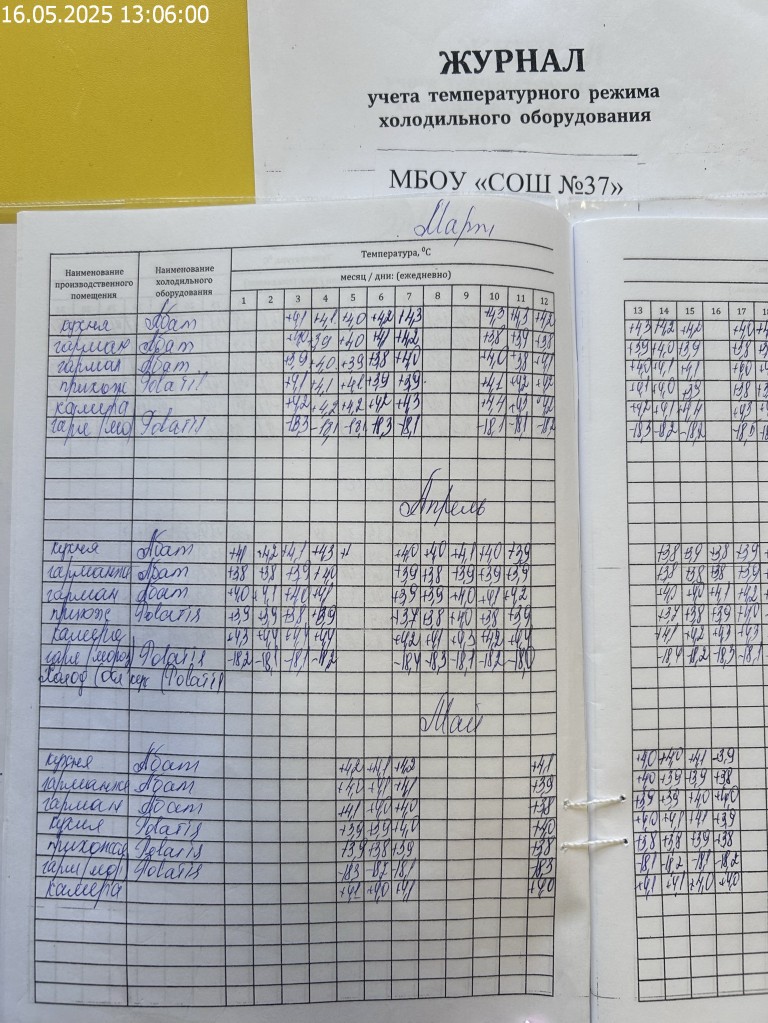 16.05.2025 13:06:00
ЖУРНАЛ
учета температурного режима
холодильного оборудования
МБОУ «СОШ №37»
Март
Наименование производственного помещения
Наименование холодильного оборудования
Температура, °С
месяц / дни: (ежедневно)
1 2 3 4 5 6 7 8 9 10 11 12
13 14 15 16 17 18
кухня Абат +4,1 +4,1 +4,0 +4,2 +4,3 +4,3 +4,3 +4,2
гарман Абат +4,0 +4,1 +4,2 +3,8 +3,9 +3,8
гарман Абат +3,9 +4,0 +3,9 +3,8 +4,0 +4,0 +3,8 +4,1
прихож Polaris +4,1 +4,1 +3,9 +3,9 +4,1 +4,2 +4,2
камера +4,2 +4,2 +4,2 +4,2 +4,3 +4,4 +4,3 +4,2
гарм (мо) Polaris -18,3 -18,1 -18,1 -18,1 -18,2
Апрель
кухня Абат +4,1 +4,2 +4,1 +4,3 +4,0 +4,0 +4,1 +4,0 +3,9
гарманж Абат +3,8 +3,8 +3,9 +4,0 +3,9 +3,8 +3,9 +3,9 +3,9
гарман Абат +4,0 +4,1 +4,0 +4,1 +3,9 +3,9 +4,0 +4,1 +4,2
прихож Polaris +3,9 +3,9 +3,8 +3,9 +3,7 +3,8 +4,0 +3,8 +3,9
камера +4,3 +4,4 +4,4 +4,4 +4,2 +4,1 +4,3 +4,2 +4,4
гарм (мороз) Polaris -18,2 -18,1 -18,1 -18,2 -18,4 -18,3 -18,1 -18,2 -18,0
Холод Polaris
Май
кухня Абат +4,2 +4,1 +4,2 +4,1
гарманж Абат +4,0 +4,1 +4,1 +3,9
гарман Абат +4,1 +4,0 +4,0 +3,8
кухня Polaris +3,9 +3,9 +4,0 +4,0
прихожая Polaris +3,9 +3,8 +3,9 +3,8
гарм (мор) Polaris -18,3 -18,1 -18,3
камера +4,2 +4,0 +4,1 +4,0
+4,3 +4,2 +4,2 +4,0
+3,9 +4,0 +3,9 +3,8
+4,0 +4,1 +4,1
+4,1 +4,0 +3,9 +3,8
+4,2 +4,1 +4,4 +4,3
-18,3 -18,2 -18,2
+3,8 +3,9 +3,8 +3,9
+3,8 +3,8 +3,8 +3,9
+4,0 +4,0 +4,1 +4,2
+3,7 +3,8 +3,9 +4,0
+4,1 +4,2 +4,3 +4,3
-18,4 -18,2 -18,3 -18,1
+4,0 +4,0 +4,1 +3,9
+4,0 +3,9 +3,9 +3,8
+3,9 +3,9 +4,0 +4,0
+4,0 +4,1 +4,1 +3,9
+3,8 +3,8 +3,9 +3,8
-18,1 -18,2 -18,1 -18,2
+4,1 +4,1 +4,0 +4,0